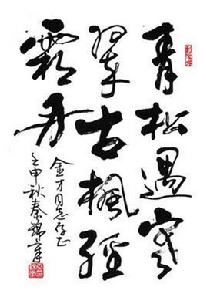 青松遇寒
翠古楓經
霜丹
金才同志存正
壬申秋秦